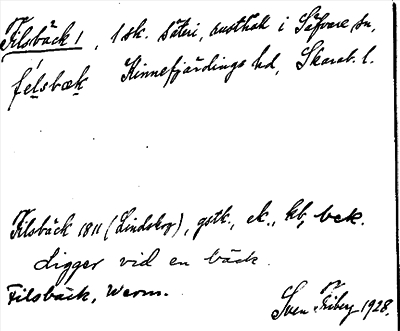 Filsbäck 1, 1 sk. säteri, rusthåll i Säfvare sn,
félsbæk Kinnefjärdings hd, Skarab. l.
Filsbäck 1811 (Lindskog), gstk., ek., kb, bek.
Ligger vid en bäck.
Filsbäck, Werm.
Sven Friberg 1928.